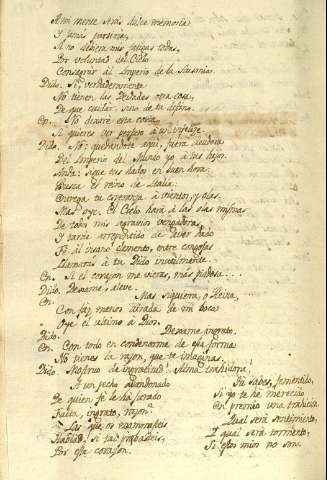 A mi mente Amás dulce memoria
Y jamás partiria,
Si no debiera mis fatigas todas,
Por voluntad del Cielo
Consagrar al Imperio de la Ausonia.
Dido. Si; verdaderamente
No tienen las Deidades otra cosa,
De que cuidar, sino de tu
En. No dejaré esta
Si quieres ver perjuro à un infelize.
Dido. No: quedandote aqui, fuera deudora
Del Imperio del Mundo yo à tus hijos.
Anda: sigue tus hados en buen hora:
Busca el reino de Italia:
Entrega tu esperanza à vientos, y olas.
Mas oye. El Cielo hará à las olas mismas
De todos mis agravios vengadoras,
Y tarde arrepentido de haver dado
Fé al insano elemento, entre congojas
Llamarás à tu Dido inutilmente
En. Si el corazon me vieras, más piadosa....
Dido. Dexame, aleve.
En. Mas siquiera, o Reina,...
Con faz menos airada de mi boca
Oye el ultimo à Dios.
Dido. Dexame, ingrato.
En. Con todo en condenarme de esa forma
No tienes la razon, que te imaginas.
Dido. Mostruo de ingratitud! Alma traidora!
A un pecho abandonado
De quien fe le ha jurado
Falta, ingrato, razon?
Los que os enamorasteis
Hablad; si tal probasteis,
Por ese corazon.
Tu sabes, fementido,
Si yo te he merecido
En premio una traicion
Qual será sentimiento,
Y qual será tormento,
Si estos mios no son.